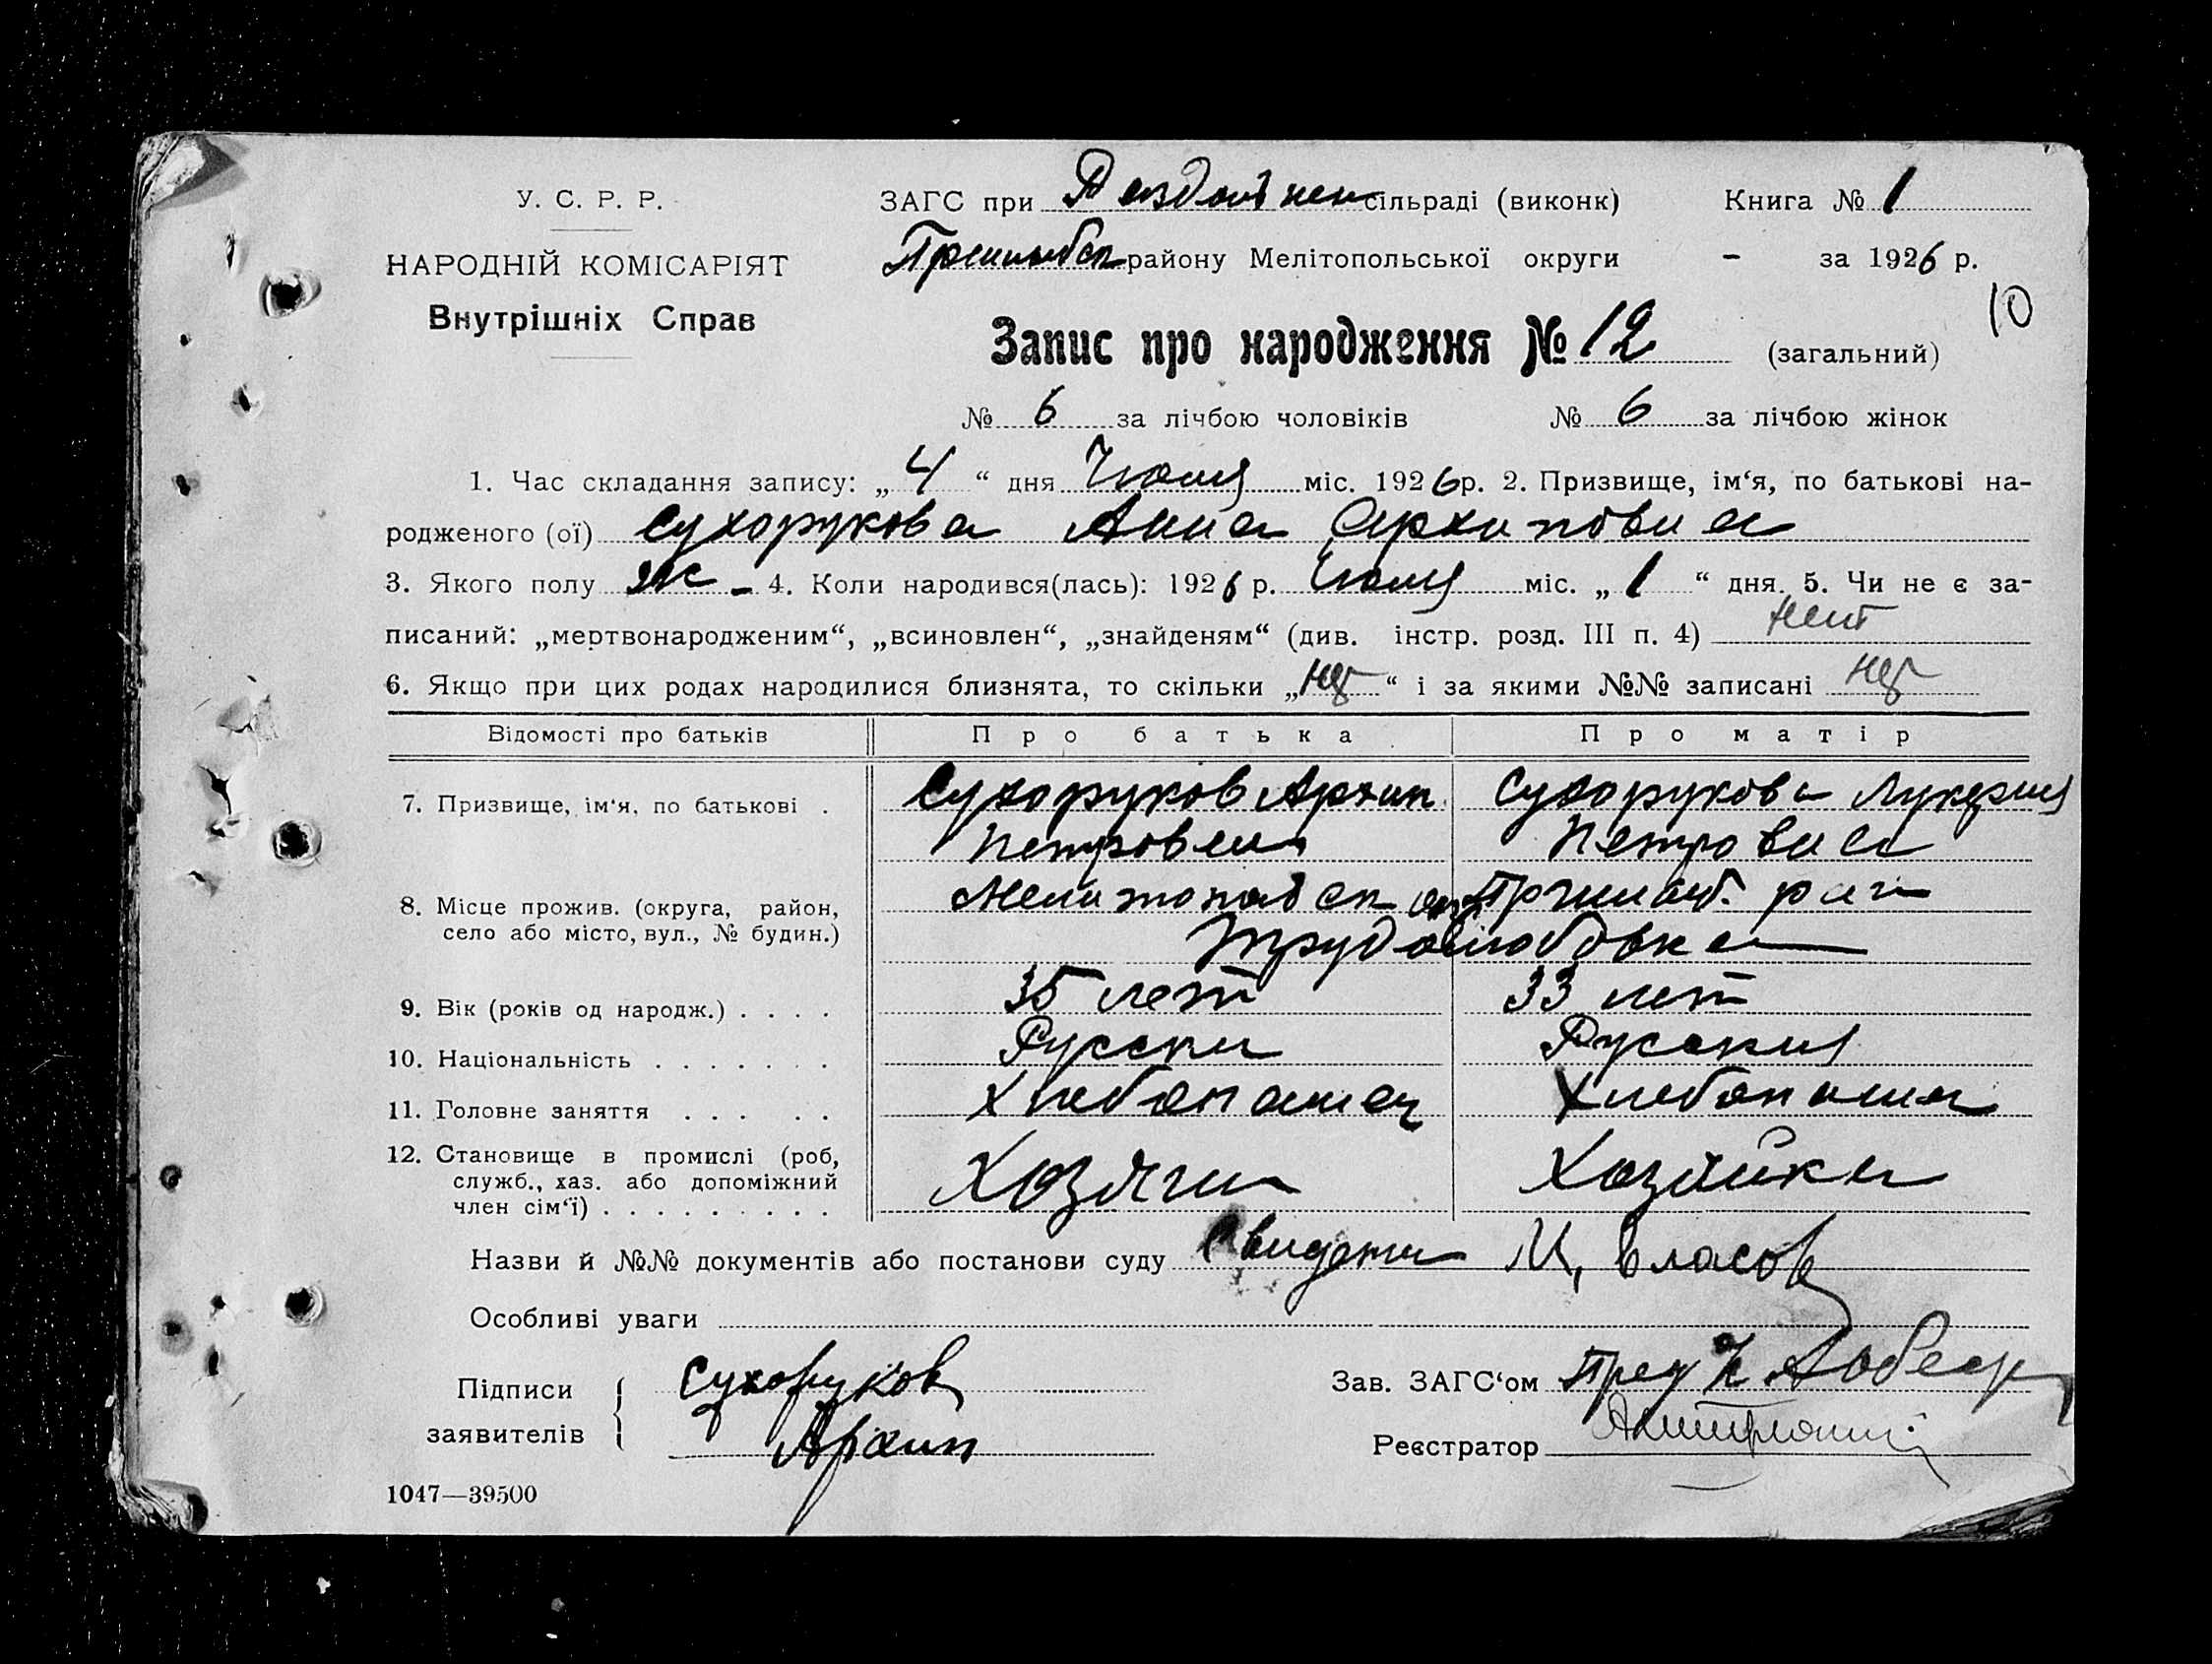 У. С. Р. Р.
НАРОДНІЙ КОМІСАРІЯТ
Внутрішніх Справ
ЗАГС при сільраді (виконк) Книга № 1
району Мелітопольської округи - за 1926 р.
10
Запис про народження № 12 (загальний)
№ 6 за лічбою чоловіків № 6 за лічбою жінок
1. Час складання запису: „ 4 “ дня міс. 1926 р. 2. Призвище, ім‘я, по батькові на-
родженого (ої) Сухорукова Анна Архиповна
3. Якого полу ж - 4. Коли народився(лась): 1926 р. міс. „ 1 “ дня. 5. Чи не є за-
писаний: „мертвонародженим“, „всиновлен“, „знайденям“ (див. інстр. розд. III п. 4) нет
6. Якщо при цих родах народилися близнята, то скільки „ нет “ і за якими №№ записані нет
Відомості про батьків Про батька Про матір
7. Призвище, ім‘я, по батькові . Сухоруков Архип Сухорукова Лукерия
Петрович Петровна
8. Місце прожив. (округа, район, село або місто, вул., № будин.) Мелитопольск окр Пришиб. рай
Трудолюбовка
9. Вік (років од народж.) . . . . 35 лет 33 лет
10. Національність . . . . . . . Русски Руская
11. Головне заняття . . . . . Хлебопашец Хлебопаш
12. Становище в промислі (роб, служб., хаз. або допоміжний член сім‘ї) . . . . . . . . . Хозяин Хозяйка
Назви й №№ документів або постанови суду И, Власов
Особливі уваги
Підписи заявителів Сухоруков
Архип
Зав. ЗАГС‘ом Пред
Реєстратор
1047—39500